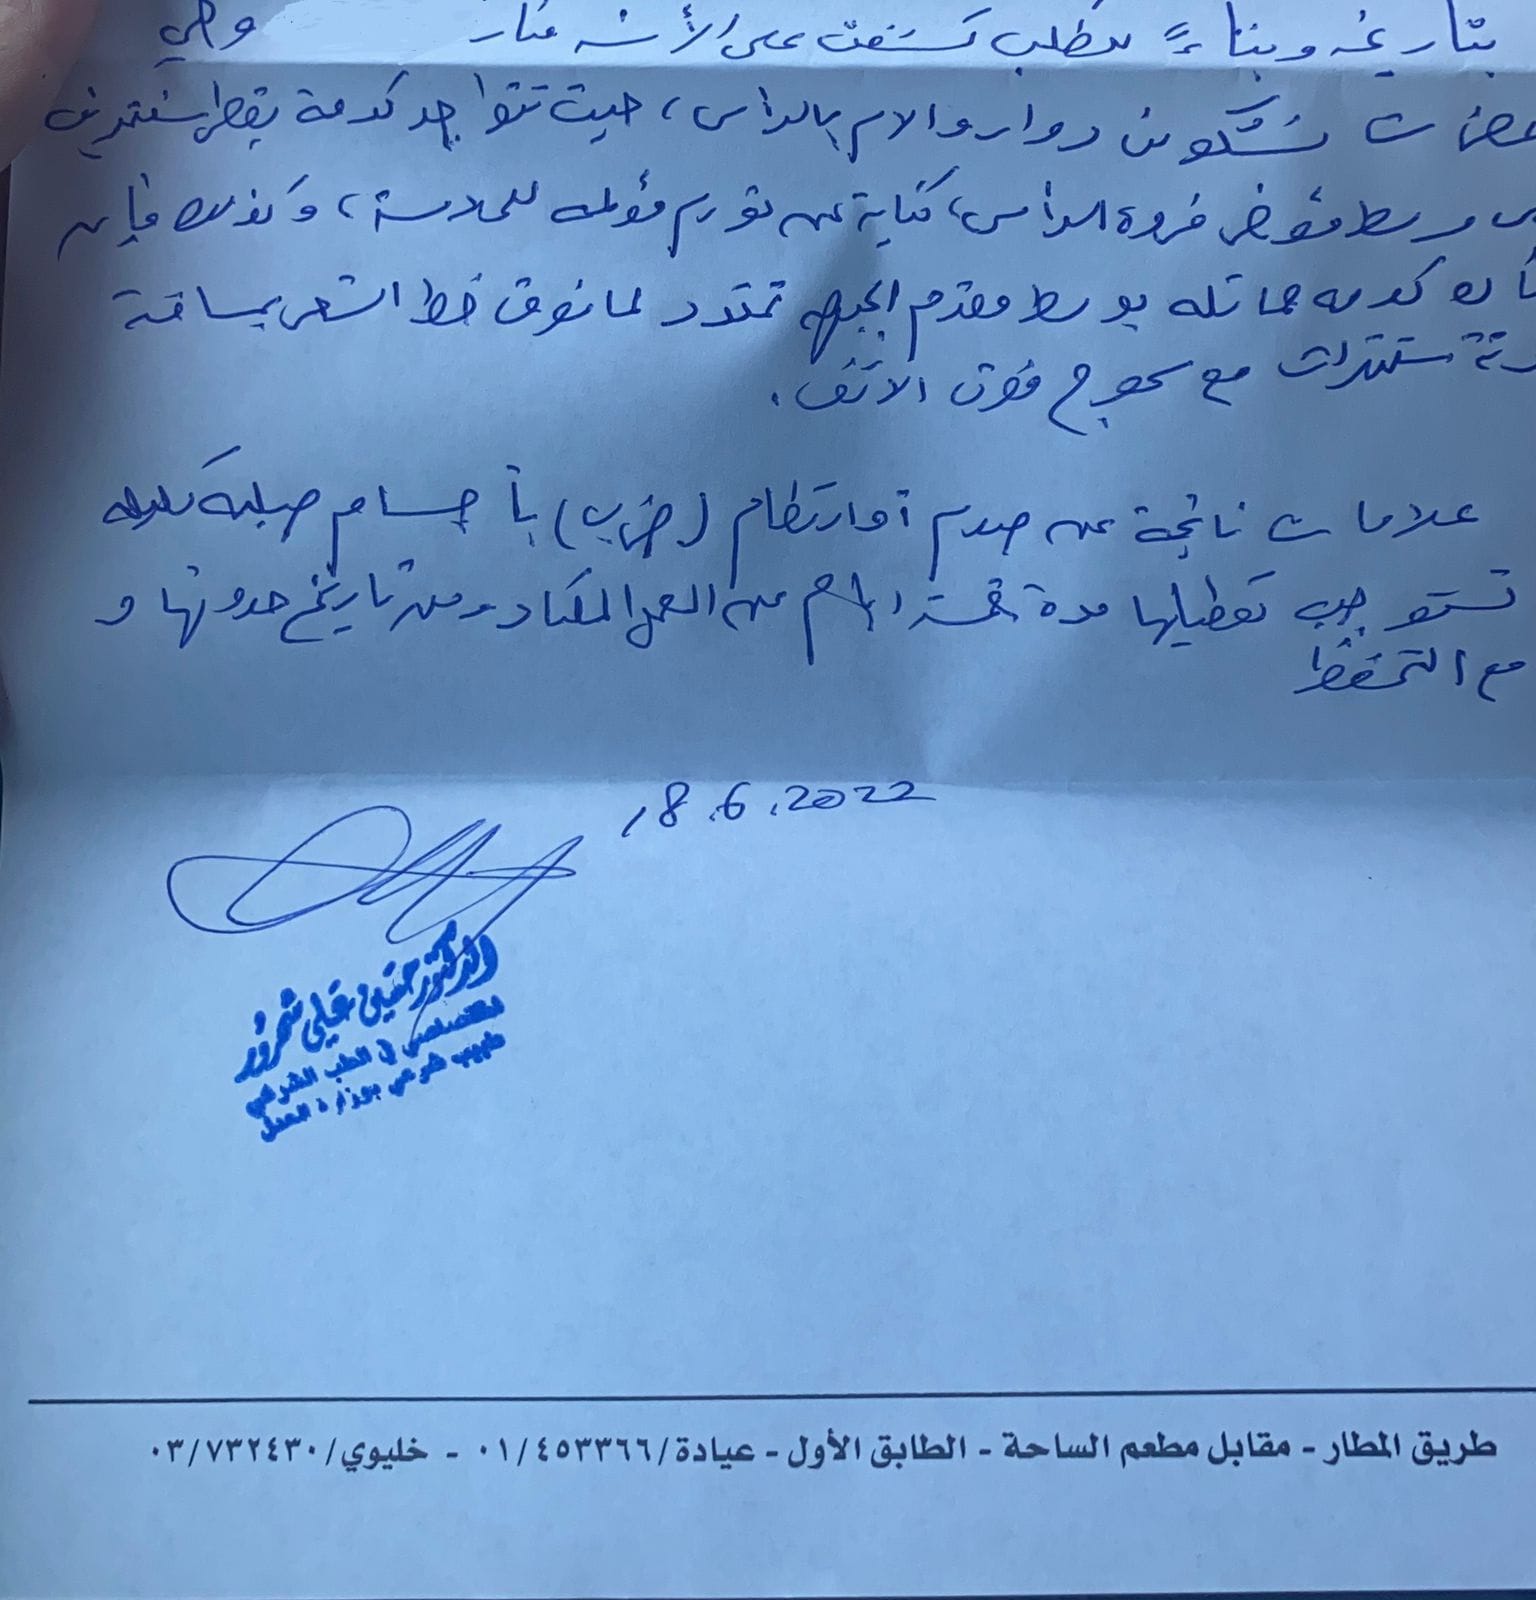 بتاريخه وبناءً لطلب كشفت على الأنسة منار وهي
تشكو من دوار والام بالرأس، حيث تتواجد كدمة بقطر سنتمرين
وسط مؤخر فروة الرأس، كناية عن تورم مؤلمه للملامسة، وكذلك فإن
كدمه مماثله بوسط مقدم الجبهه تمتد لما فوق خط الشعر بمسافة
سنتمرات مع سحوج فوق الأنف.
علامات ناتجة عن صدم أو ارتطام (ضرب) بأجسام صلبة
تستوجب تعطيلها مدة خمسة ايام عن العمل المعتاد ومن تاريخ حدوثها و
مع التحفظ
18.6.2022
الدكتور حسين علي شحرور
اختصاصي في الطب الشرعي
طبيب شرعي بوزارة العدل
طريق المطار - مقابل مطعم الساحة - الطابق الأول - عيادة/٠١/٤٥٣٣٦٦ - خليوي/٠٣/٧٣٢٤٣٠